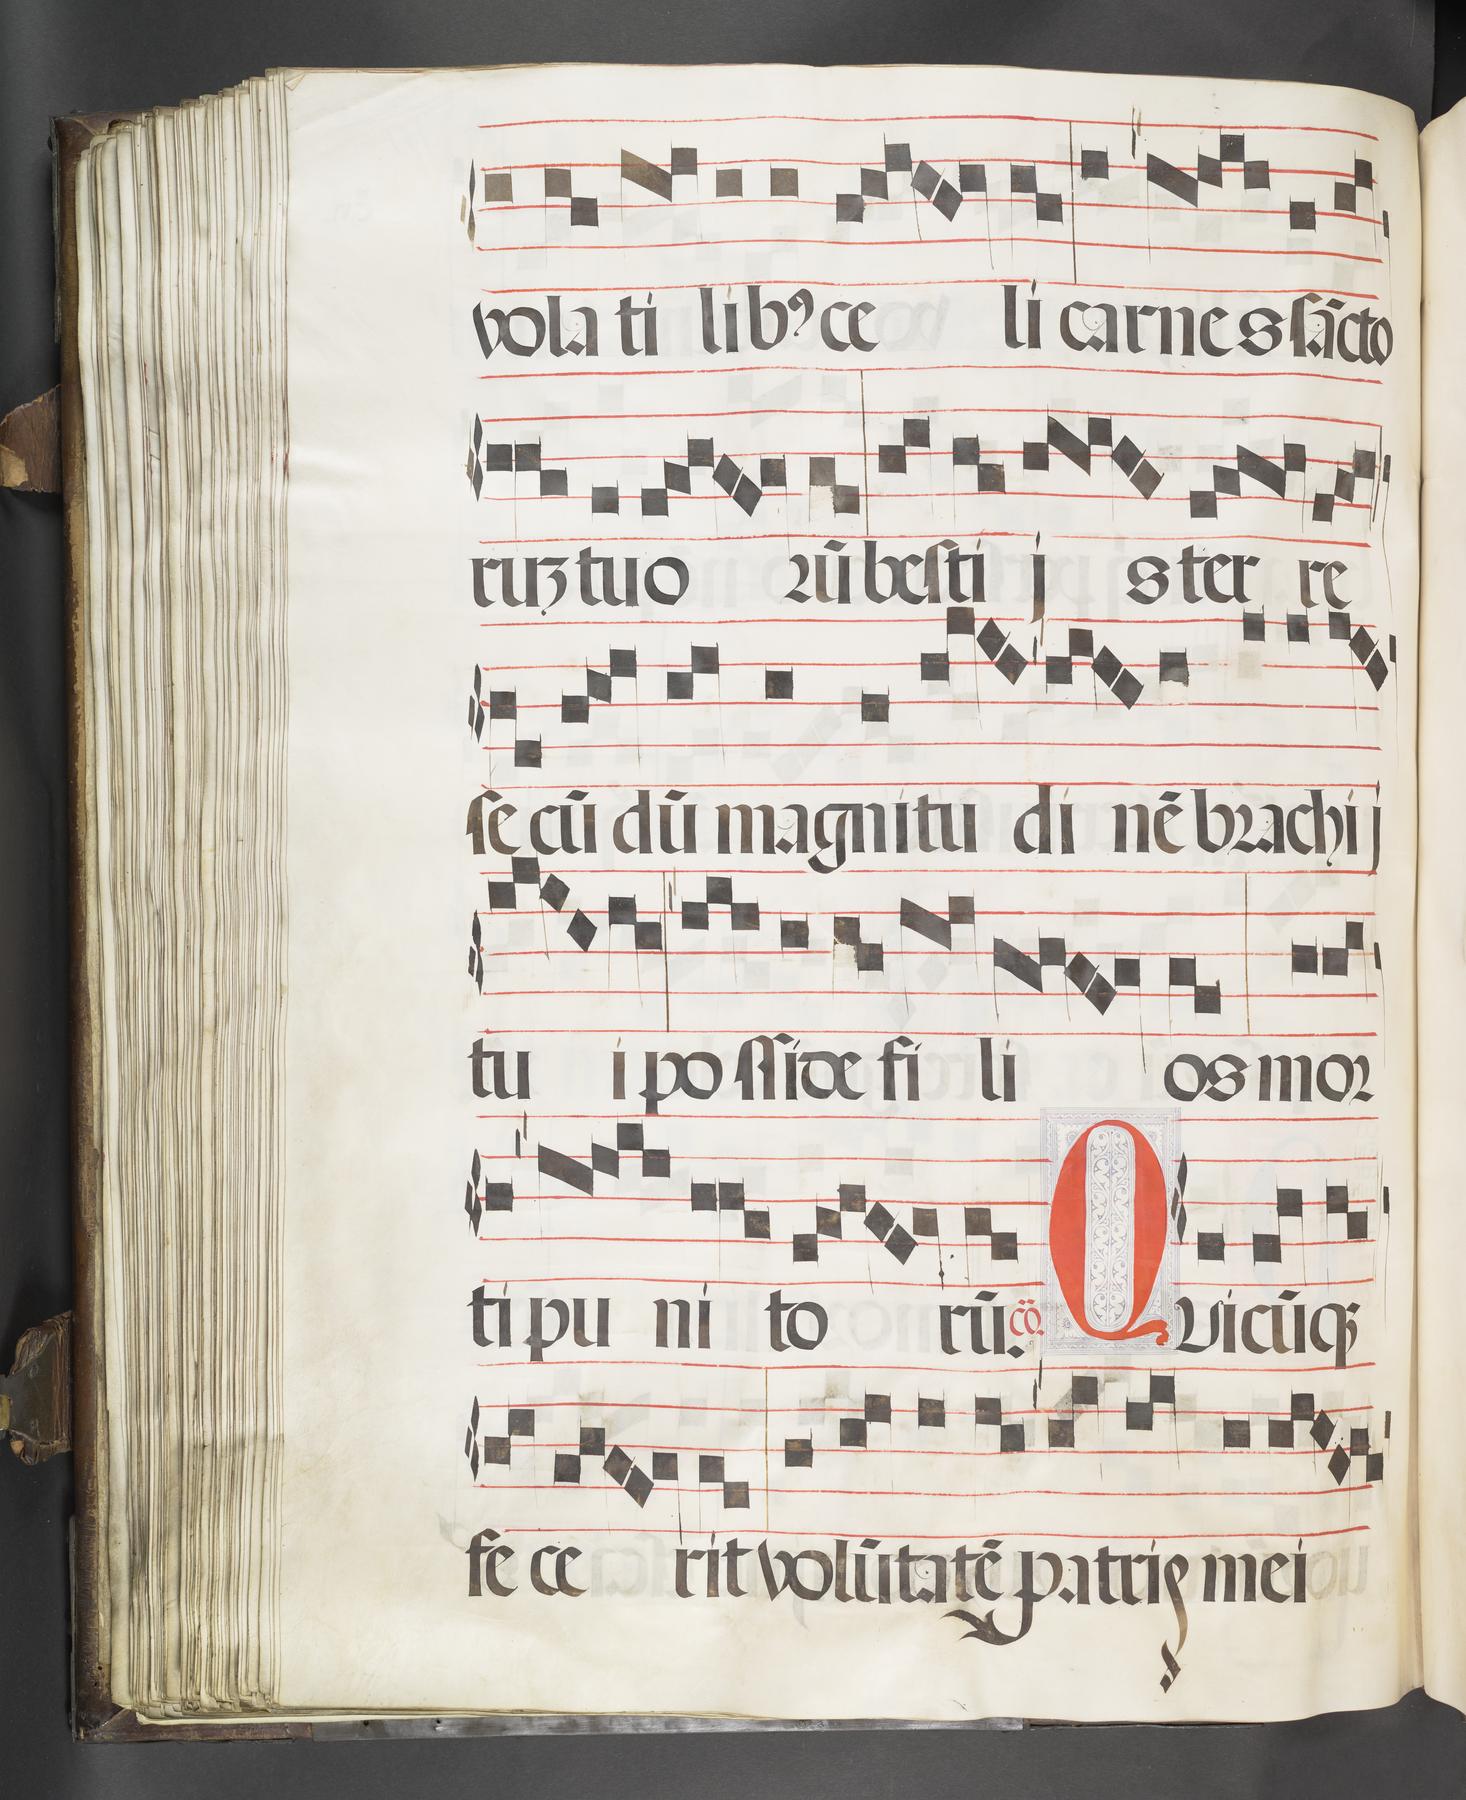 vola ti libꝰ ce li carnes sācto
ruꝫ tuo ꝛū besti j s ter re
se cū dū magnitu di nē bꝛachij
tu i posside fi li os moꝛ
ti pu ni to rū. cō. Quicūqꝫ
fe ce rit volūtatē patris mei